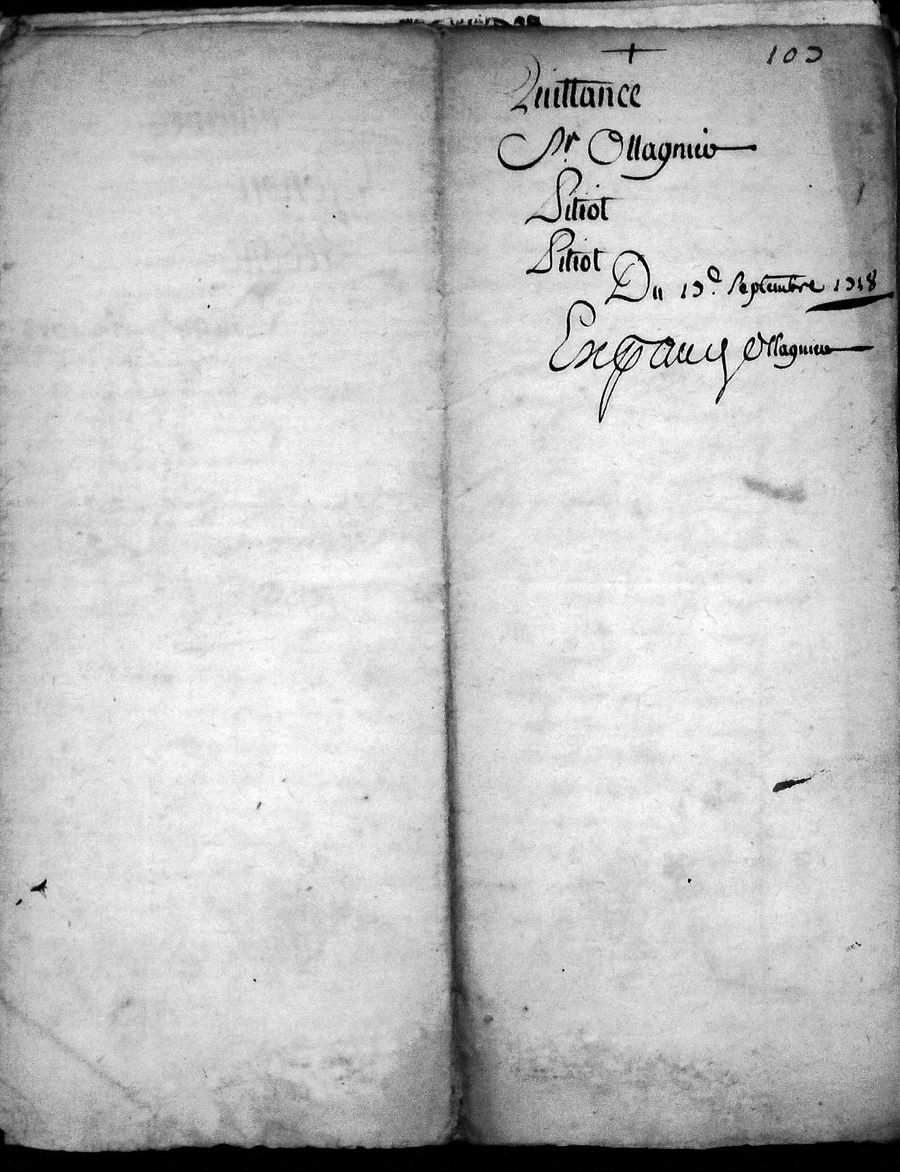 103
Quittance
Sr. Ollagnier
Litiot
Litiot
Du 13e. Septembre
Ollagnier